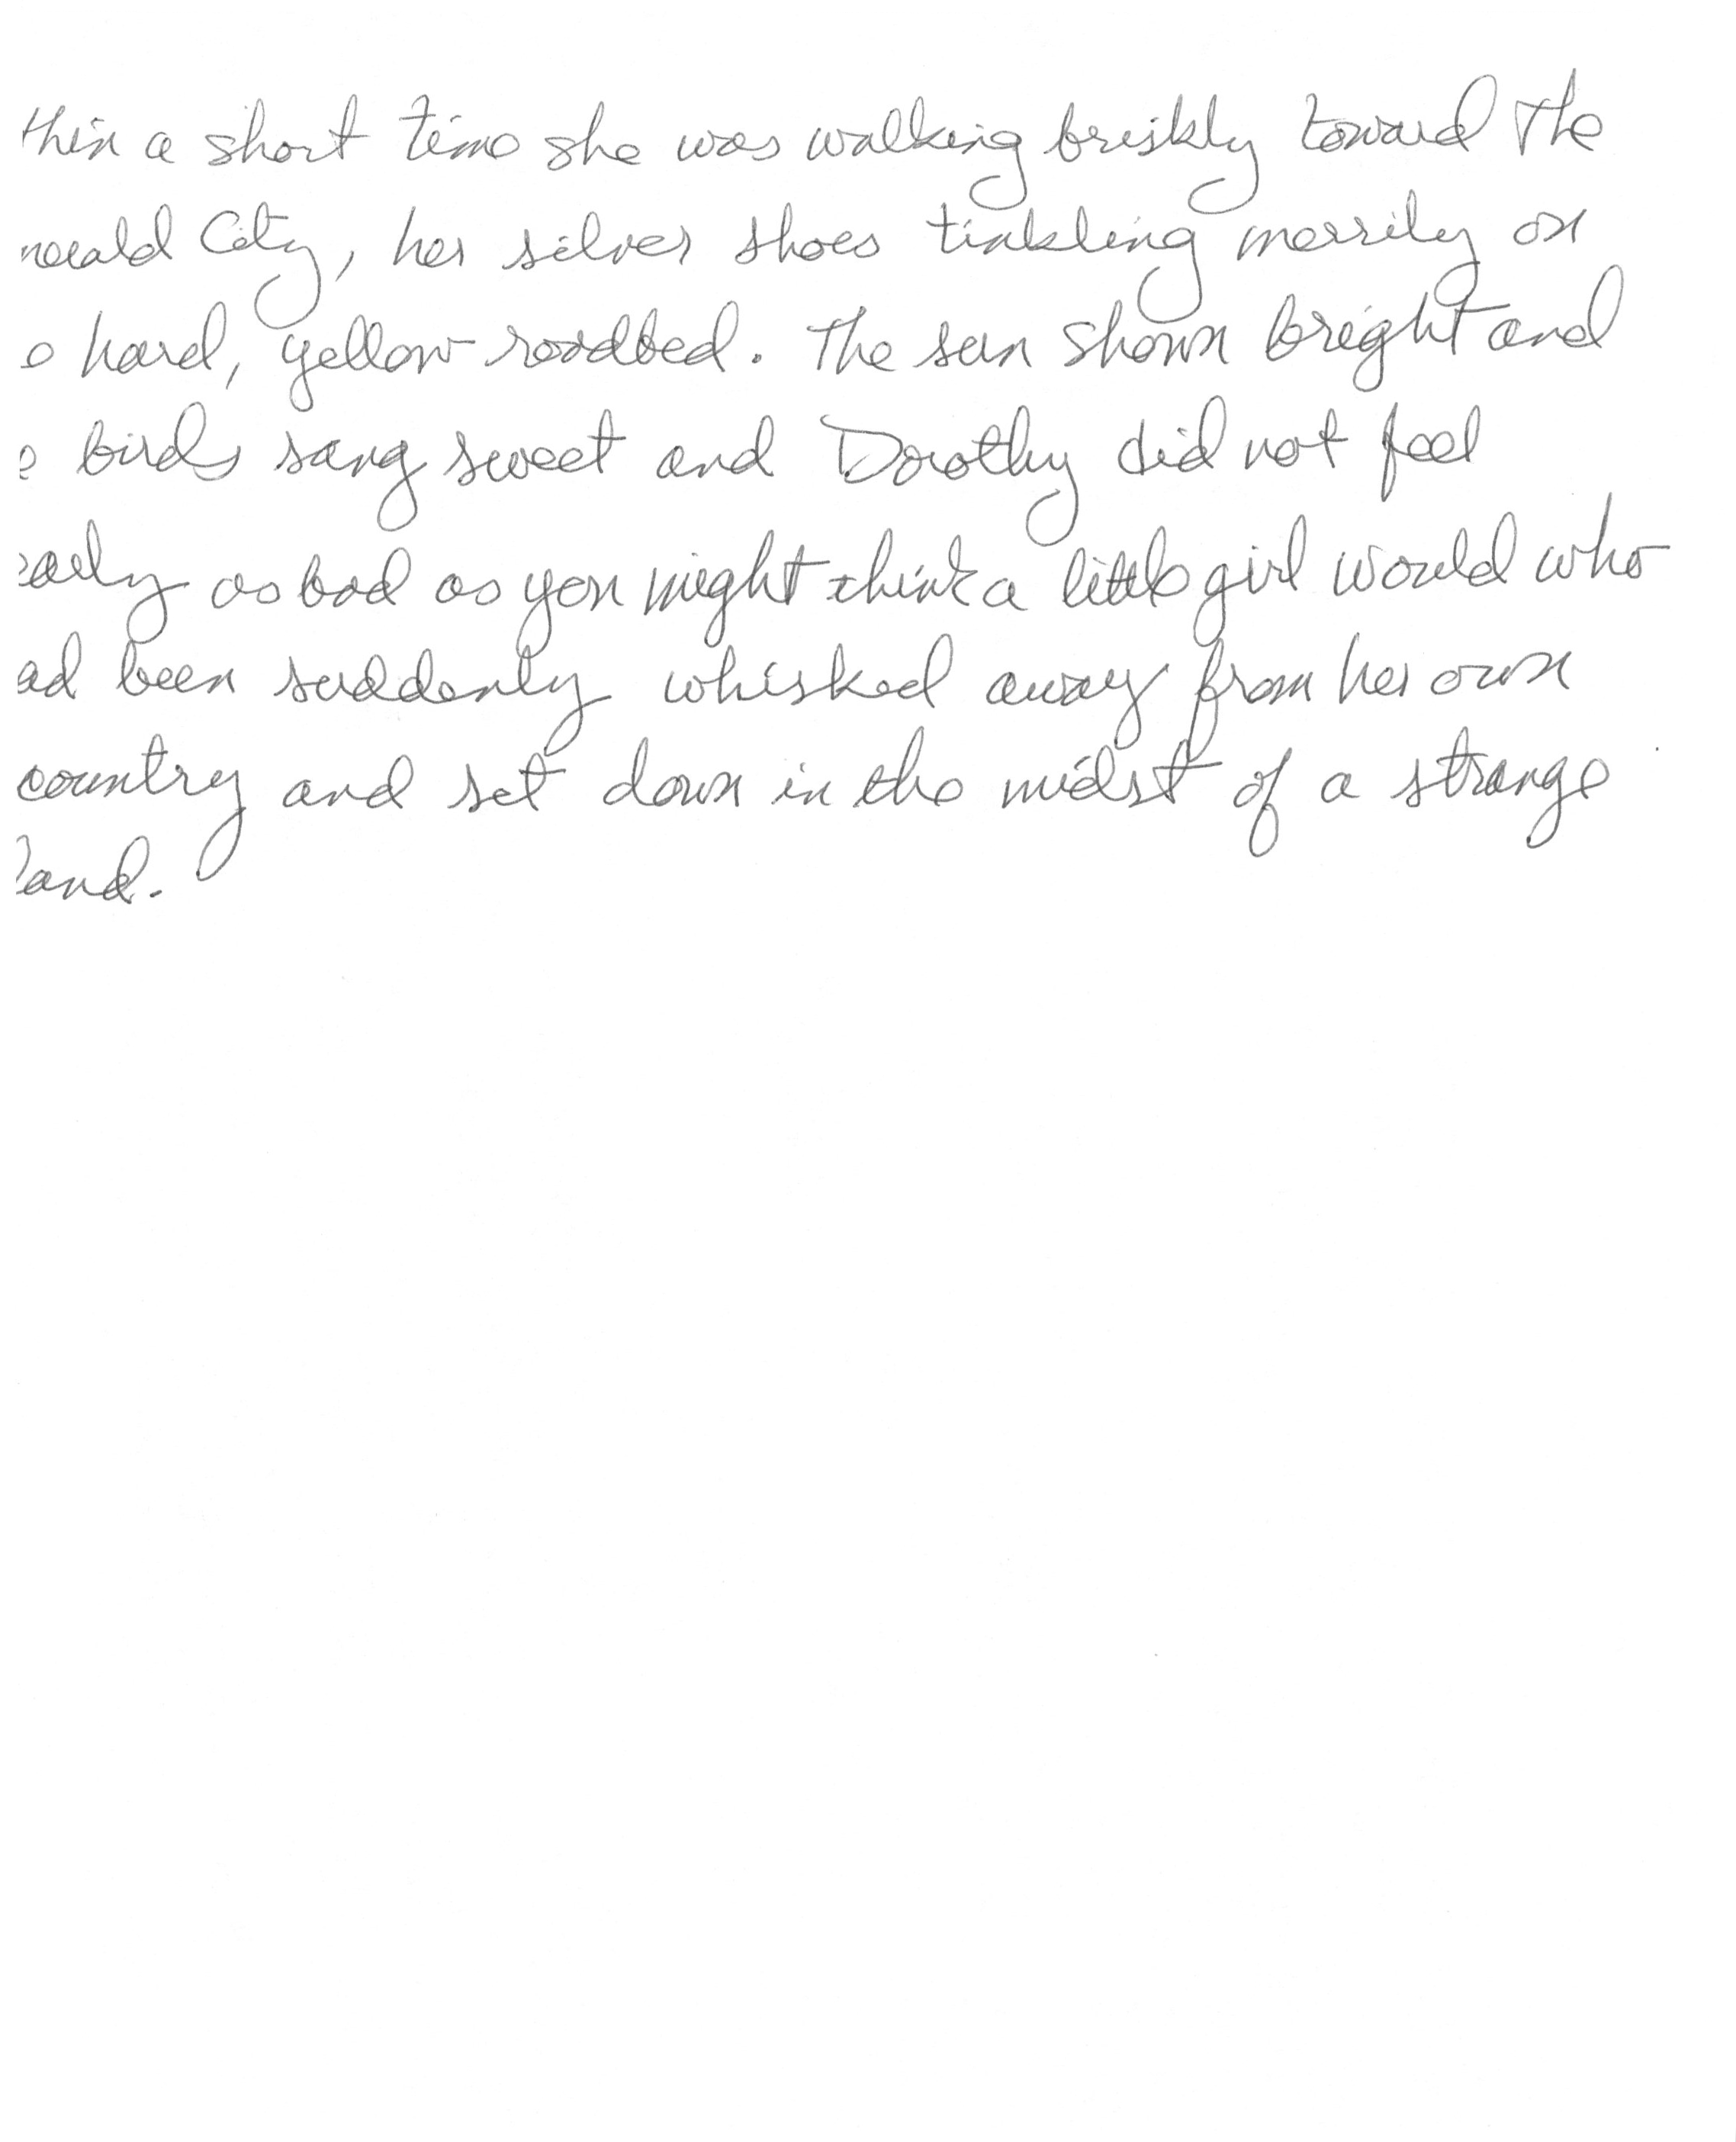 thin a short time she was walking briskly toward the
nerald City, her silver shoes tinkling merrily on
e hard, yellow roadbed. The sun shown bright and
e birds sang sweet and Dorothy did not feel
early as bad as you might think a little girl would who
ad been suddenly whisked away from her own
country and set down in the midst of a strange
land.